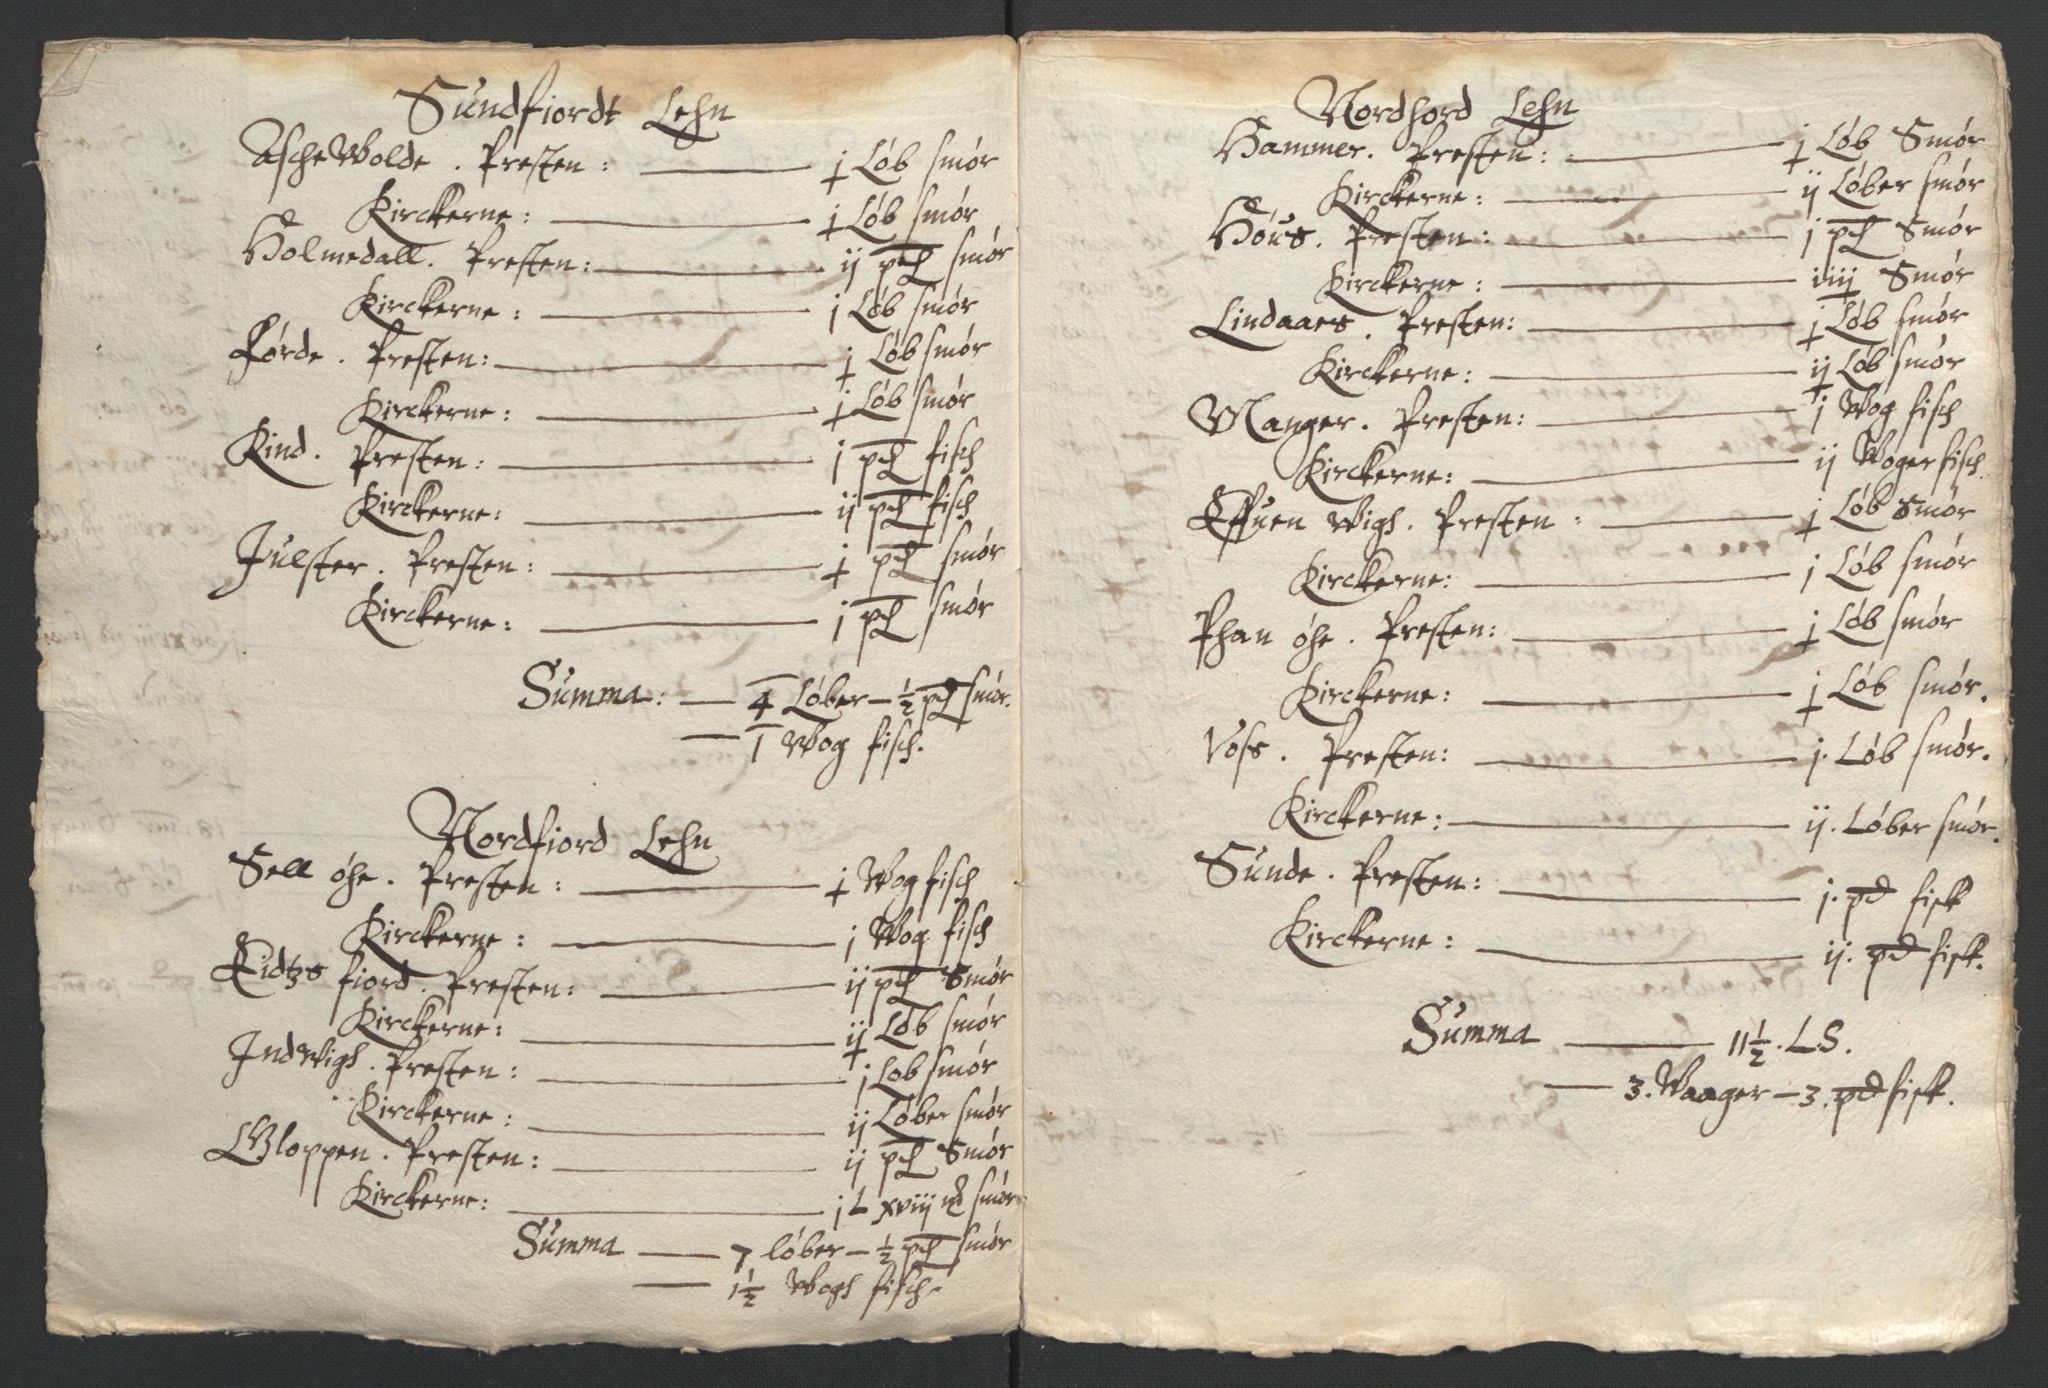 Sundfiordt Lehn
Aschewolde. Presten: j Løb smør
Kirckerne: j Løb smør
Holmedall. Presten: ij pd smør
Kirckerne: j Løb smør
Førde. Presten: j Løb smør
Kirckerne: j Løb smør
Kind. Presten: j pd fisch
Kirckerne: ij pd fisch
Julster. Presten: j pd smør
Kirckerne: j pd smør
Summa: 4 Løber — ½ pd smør.
1 Wog fisch.
Nordfiord Lehn
Sell øhe. Presten: j Wog fisch
Kirckerne: j Wog fisch
Eidtzfiord. Presten: ij pd Smør
Kirckerne: ij Løb smør
Indwigh. Presten: j Løb smør
Kirckerne: ij Løber smør
Gloppen. Presten: ij pd Smør
Kirckerne: j L xviij mk smør
Summa 7 løber — ½ pd smør
1½ Wogh fisch.
Nordhord Lehn
Hammer. Presten: j Løb Smør
Kirckerne: ij Løber smør
Høus. Presten: j pd Smør
Kirckerne: iiij Smør
Lindaaes. Presten: j Løb smør
Kirckerne: ij Løb smør
Manger. Presten: j Wog fisch
Kirckerne: ij Woger fisch
Effuen wigh. Presten: j Løb Smør
Kirckerne: j Løb smør
Phan øhe. Presten: j Løb smør
Kirckerne: j Løb smør.
Voss. Presten: j. Løb smør.
Kirckerne: ij. Løber smør.
Sunde. Presten: j. pd fisk
Kirckerne: ij. pd fisk.
Summa 11½. L.S.
3. Waager — 3. pd fisk.